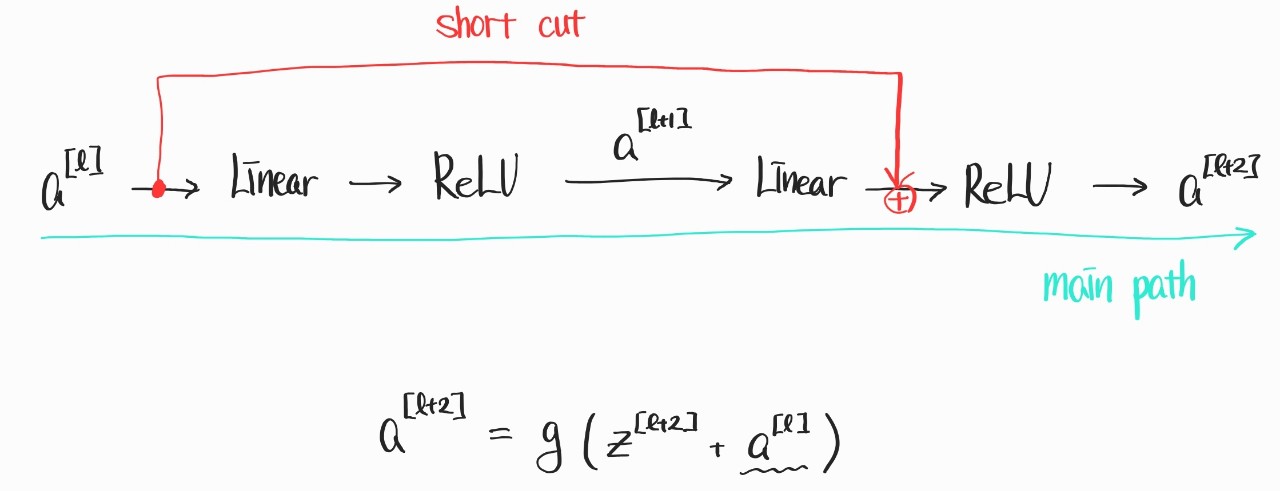 short cut
a^[l] → Linear → ReLU → a^[l+1] Linear → ⊕ → ReLU → a^[l+2]
main path
a^[l+2] = g ( z^[l+2] + a^[l] )